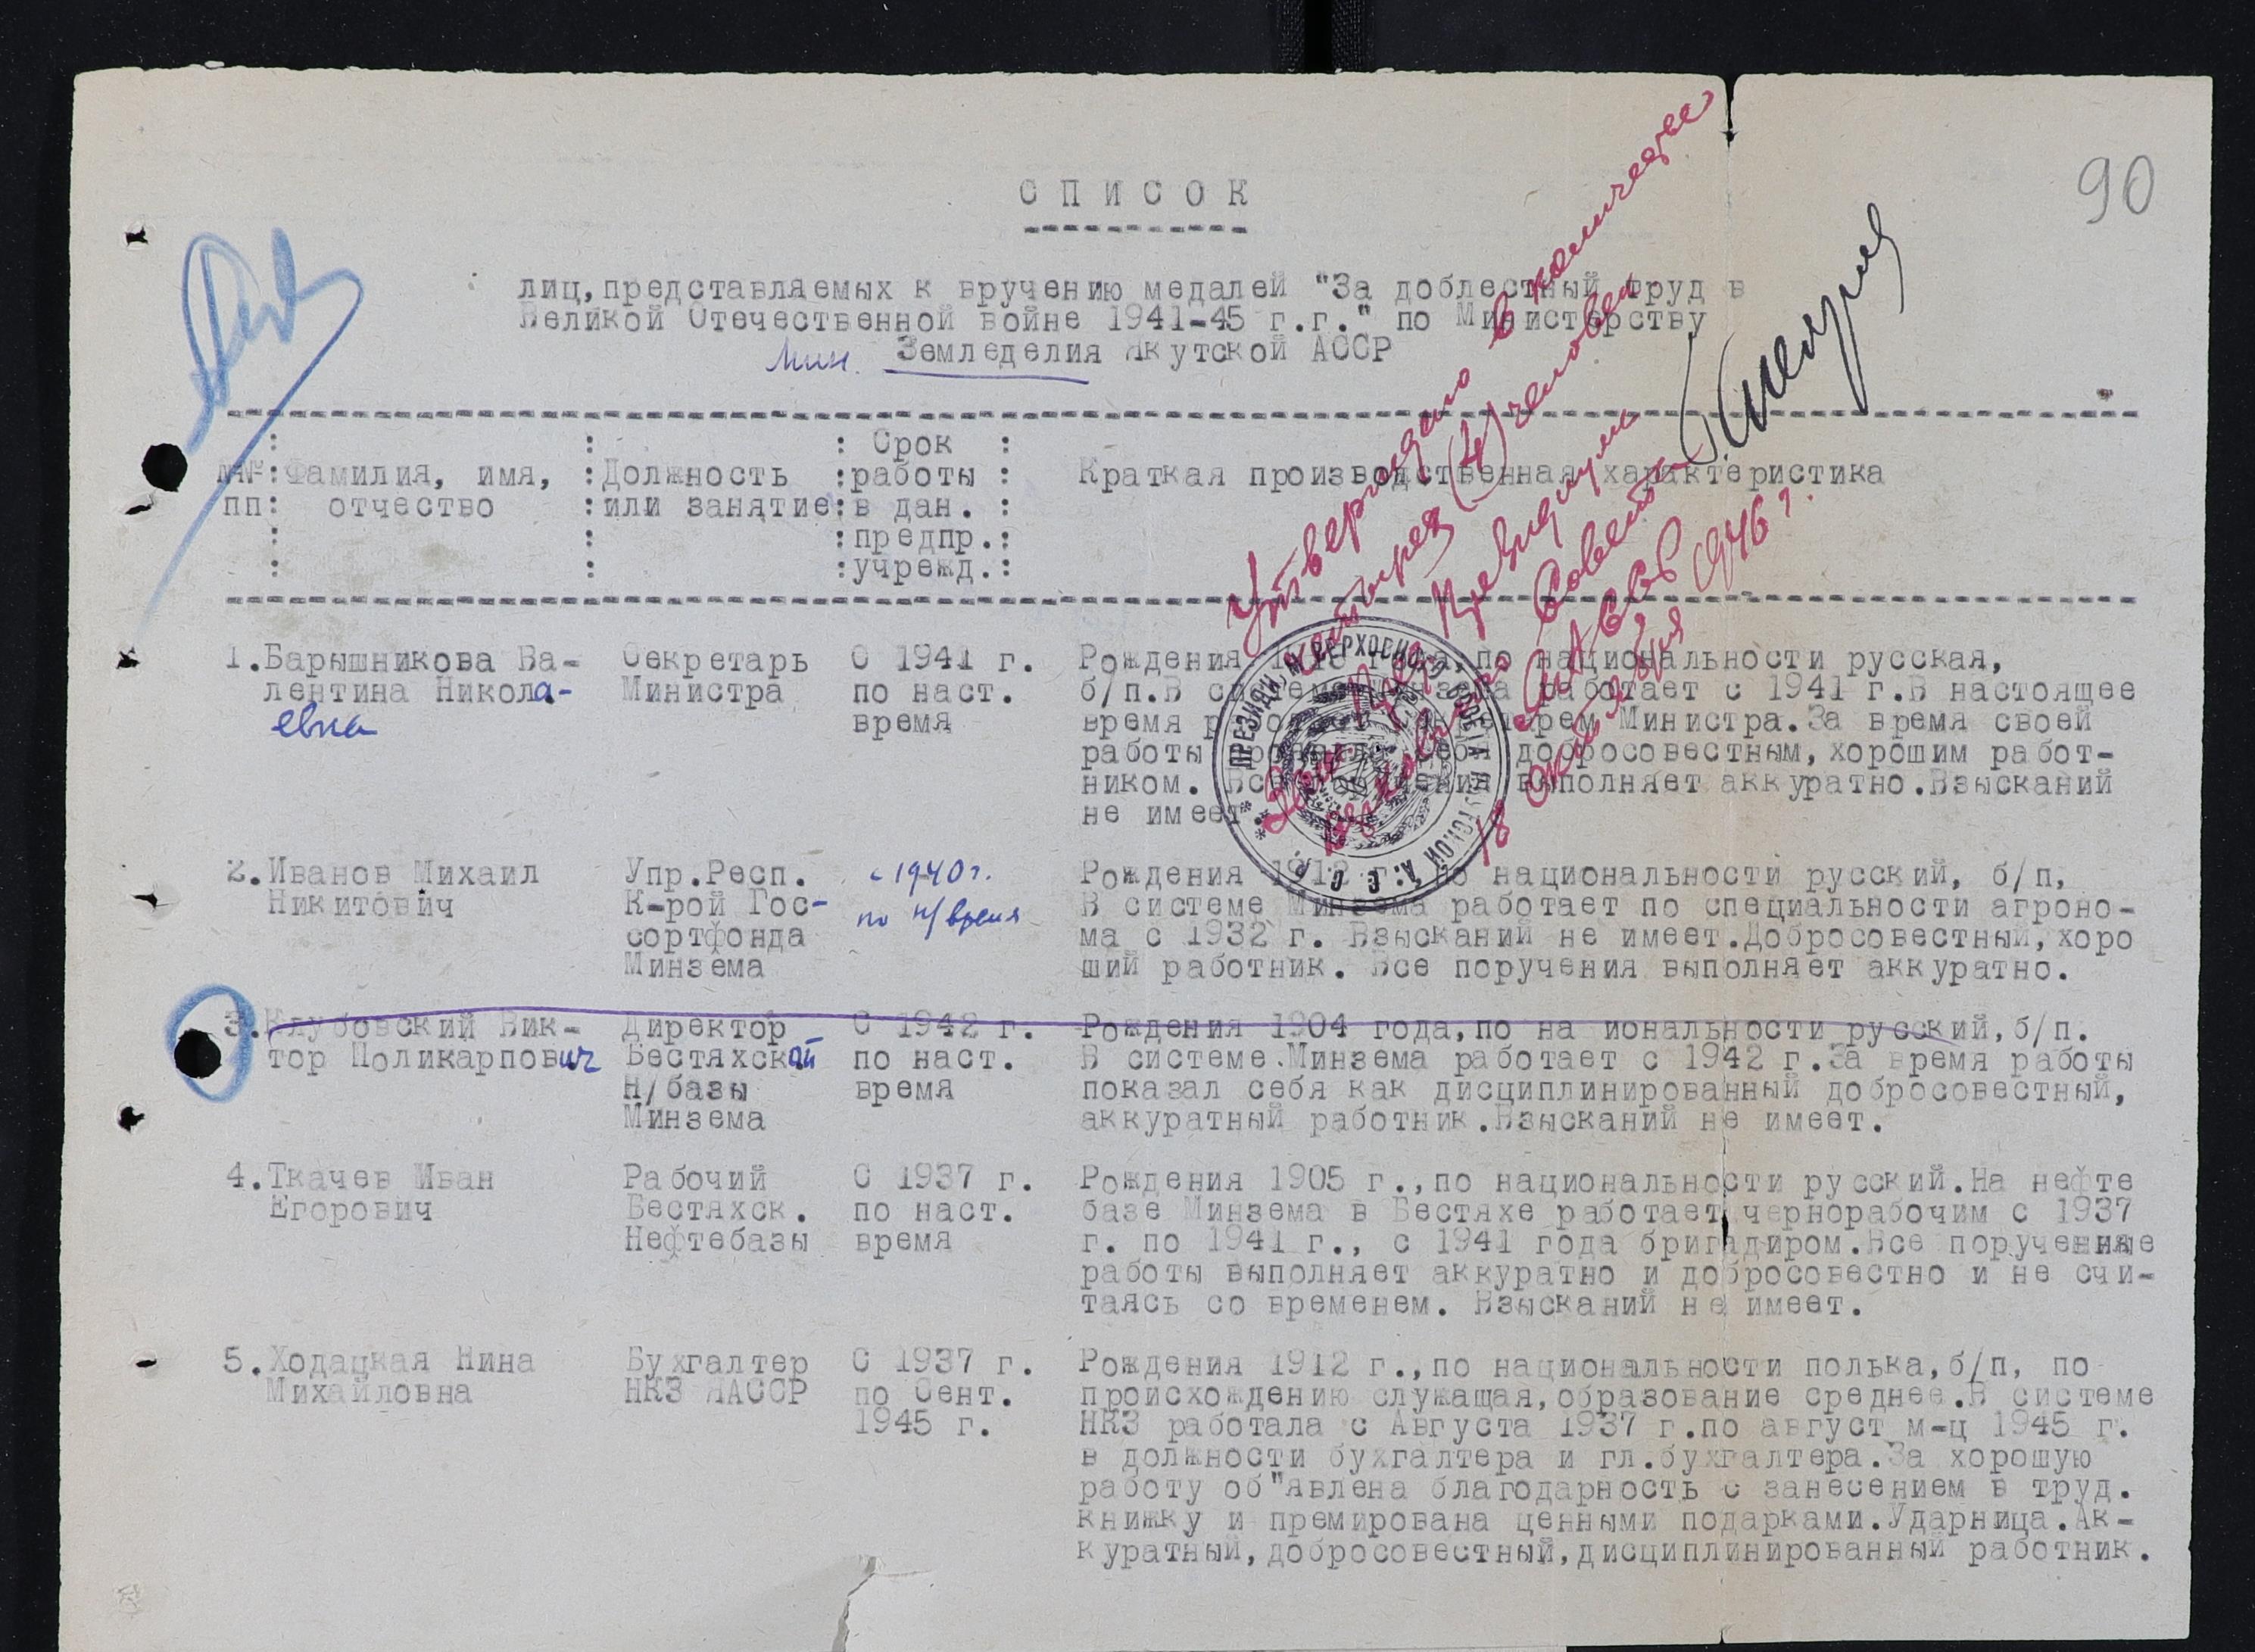 90
С П И С О К
лиц,представляемых к вручению медалей "За доблестный труд в
Великой Отечественной войне 1941-45 г.г." по Министерству
Мин. Земледелия Якутской АССР
Утверждено в количестве
четырех (4) человек
Зам. Пред. Президиума
Верховного Совета
ЯАССР
18 октября 1946 г.
№№: Фамилия, имя, : Должность : Срок : Краткая производственная характеристика
пп: отчество : или занятие: работы :
: в дан. :
: предпр.:
: учрежд.:
ПРЕЗИДИУМ ВЕРХОВНОГО СОВЕТА ЯКУТСКОЙ А. С. С. Р.
1.Барышникова Ва- Секретарь С 1941 г. Рождения года,по национальности русская,
лентина Никола- Министра по наст. б/п.В системе Минзема работает с 1941 г.В настоящее
евна время время работает секретарем Министра.За время своей
работы себя добросовестным,хорошим работ-
ником. Все поручения выполняет аккуратно.Взысканий
не имеет
2.Иванов Михаил Упр.Респ. с 1940 г. Рождения 1912 г. по национальности русский, б/п,
Никитович К-рой Гос- по н/время В системе Минзема работает по специальности агроно-
сортфонда ма с 1932 г. Взысканий не имеет.Добросовестный,хоро
Минзема ший работник. Все поручения выполняет аккуратно.
3.Клубовский Вик- Директор С 1942 г. Рождения 1904 года,по на иональности русский,б/п.
тор Поликарпович Бестяхской по наст. В системе.Минзема работает с 1942 г.За время работы
Н/базы время показал себя как дисциплинированный добросовестный,
Минзема аккуратный работник.Взысканий не имеет.
4.Ткачев Иван Рабочий С 1937 г. Рождения 1905 г.,по национальности русский.На нефте
Егорович Бестяхск. по наст. базе Минзема в Бестяхе работает чернорабочим с 1937
Нефтебазы время г. по 1941 г., с 1941 года бригадиром.Все порученные
работы выполняет аккуратно и добросовестно и не счи-
таясь со временем. Взысканий не имеет.
5.Ходацкая Нина Бухгалтер С 1937 г. Рождения 1912 г.,по национальности полька,б/п, по
Михайловна НКЗ ЯАССР по Сент. происхождению служащая,образование среднее.В системе
1945 г. НКЗ работала с Августа 1937 г.по август м-ц 1945 г.
в должности бухгалтера и гл.бухгалтера.За хорошую
работу об"явлена благодарность с занесением в труд.
книжку и премирована ценными подарками.Ударница.Ак-
куратный,добросовестный,дисциплинированный работник.